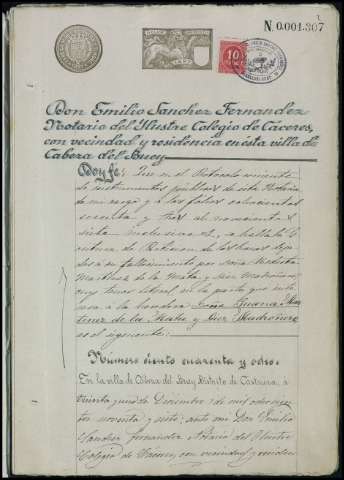 N. 0.001.307
10
Don Emilio Sanchez Fernandez
Notario del Ilustre Colegio de Cáceres,
con vecindad y residencia en ésta villa de
Cabeza del Buey
Doy fe: Que en el Protocolo corriente
de instrumentos públicos de esta Notaria
de mi cargo y a los folios ochocientos
y tres al novecientos
siete inclusive, se halla la
de los bienes
a su fallecimiento por Doña
Martinez de la Mata y
tenor literal en la parte que
a la heredera Doña Juana Mar
tinez de la Mata y Diez Madroñero
es el siguiente:
Numero ciento cuarenta y ocho.
En la villa de Cabeza del Buey Distrito de Castuera, a
treinta de Diciembre de mil ochocien
tos noventa y siete: ante mi Don Emilio
Sanchez Fernandez Notario del Ilustre
Colegio de Cáceres, con vecindad y residen